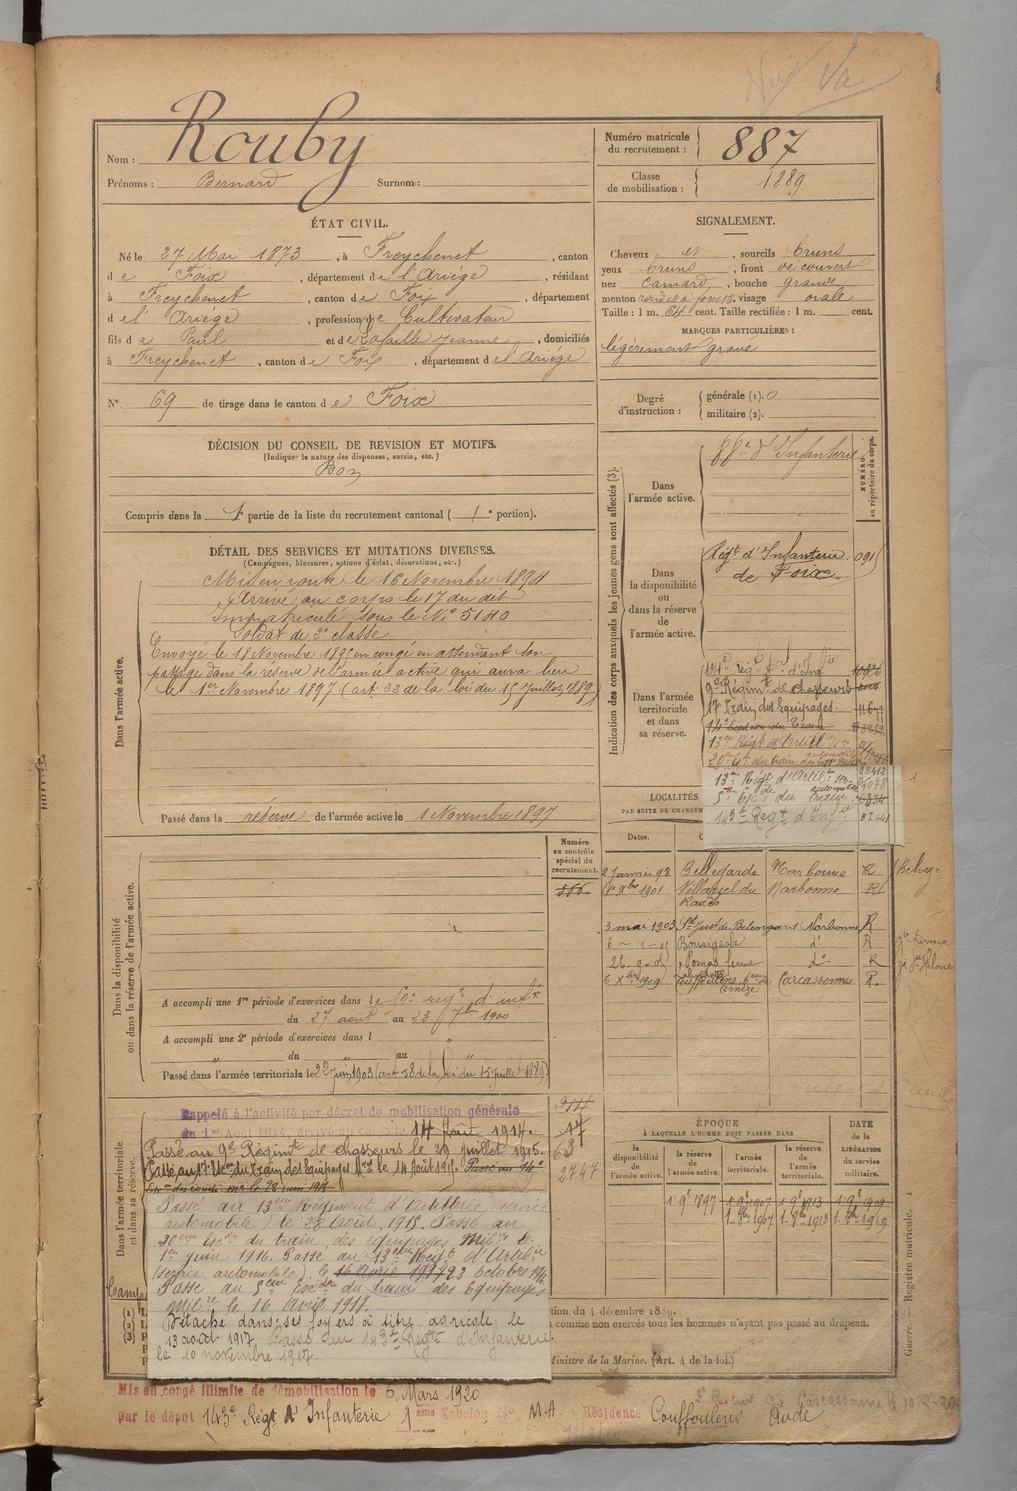 Nom : Rouby
Prénoms : Bernard Surnom :
Numéro matricule du recrutement : 887
Classe de mobilisation : 1889
ÉTAT CIVIL.
Né le 27 Mai 1873, à Freychenet, canton
de Foix, département de l'Ariége, résidant
à Freychenet, canton de Foix, département
de l'Ariége, profession de Cultivateur
fils de Paul et de Rafaille Jeanne, domiciliés
à Freychenet, canton de Foix, département de l'Ariége
N° 69 de tirage dans le canton de Foix
SIGNALEMENT.
Cheveux et, sourcils bruns
yeux bruns, front découvert
nez camard, bouche grande
menton visage ovale
Taille : 1 m. 64 cent. Taille rectifiée : 1 m. cent.
MARQUES PARTICULIÈRES :
légèrement gravé
Degré d'instruction : générale (1). 0
militaire (2).
DÉCISION DU CONSEIL DE REVISION ET MOTIFS.
(Indiquer la nature des dispenses, sursis, etc.)
Bon
Compris dans la 1e partie de la liste du recrutement cantonal ( 1e portion).
DÉTAIL DES SERVICES ET MUTATIONS DIVERSES.
(Campagnes, blessures, actions d'éclat, décorations, etc.)
Dans l'armée active.
Mis en route le 16 Novembre 1894
Arrivé au corps le 17 du dit
Immatriculé sous le N° 5140
Soldat de 2e classe
Envoyé le 18 Novembre 1895 en congé en attendant son
passage dans la réserve de l'armée active qui aura lieu
le 1er Novembre 1897 (art. 33 de la loi du 15 Juillet 1889)
Passé dans la réserve de l'armée active le 1 Novembre 1897
Indication des corps auxquels les jeunes gens sont affectés (3).
NUMÉRO au répertoire du corps.
Dans l'armée active.
d'Infanterie
Dans la disponibilité ou dans la réserve de l'armée active.
Régt d'Infanterie de Foix 091
Dans l'armée territoriale et dans sa réserve.
9e Régimt de chasseurs
17 Train des Equipages
13me Régt d'Artill
13me Régt d'Artil
5e du train
143e Régt d'Infie
LOCALITÉS
PAR SUITE DE CHANGEM
Dates.
2 Janvier 98 Bellegarde Narbonne R
Xbre 1901 Villarzel du Razès Narbonne R
3 mai 1903 St Just de Bélengard Narbonne R
do R
26 Pomas do R
6 Xbre 1909 Couffoulens Carcassonne R.
Numéro au contrôle spécial du recrutement.
Dans la disponibilité ou dans la réserve de l'armée active.
A accompli une 1re période d'exercices dans le régt d'infie
du 27 août au 23 7bre 1900
A accompli une 2e période d'exercices dans l "
du " au "
Passé dans l'armée territoriale le 22 juin 1903 (art 58 de la loi du 15 juillet 1889)
Dans l'armée territoriale et dans sa réserve.
Rappelé à l'activité par décret de mobilisation générale
du 1er Août 1914, arrivé au corps le 14 Août 1914.
Passé au 9e Régimt de chasseurs le 29 juillet 1915.
Passé au du Train des Equipages Mres le 14 Août 1915. Passé au 14e
le 28 juin 1915
Passé au 13eme Régiment d'Artillerie (service
automobile) le 28 Août 1915. Passé au
20eme Escon du train des équipages Milres le
1er juin 1916. Passé au 13eme Régt d'Artilie
(service automobile) le 16 Avril 1917 23 octobre 1916
Passé au 5eme Escon du train des Equipages
Milres le 16 Avril 1917.
Détaché dans ses foyers à titre agricole le
13 août 1917. Passé au 143e Régt d'Infanterie
le 10 novembre 1917.
2747
ÉPOQUE
À LAQUELLE L'HOMME DOIT PASSER DANS
la disponibilité de l'armée active.
la réserve de l'armée active.
l'armée territoriale.
la réserve de l'armée territoriale.
DATE de la LIBÉRATION du service militaire.
1 9e 1897 1 9e 1907 1 9e 1913 1 9e 1919
1 8bre 1907 1 8bre 1913 1 8bre 1919
tion du 4 décembre 1889.
comme non exercés tous les hommes n'ayant pas passé au drapeau.
Ministre de la Marine. (Art. 4 de la loi.)
Guerre. — Registre matricule.
Mis en congé illimité de démobilisation le 6 Mars 1920
par le dépôt 143e Régt d'Infanterie 1eme Echelon No M.A. Résidence Couffoulens Aude